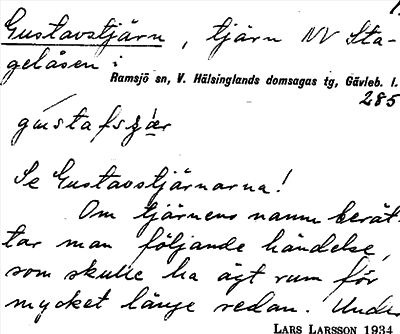 Gustavstjärn, tjärn NV Sta-
gelåsen:
Ramsjö sn, V. Hälsinglands domsagas tg, Gävleb. l.
285
Se Gustavstjärnarna!
Om tjärnens namn berät-
tar man följande händelse,
som skulle ha ägt rum för
mycket länge redan. Under
LARS LARSSON 1934